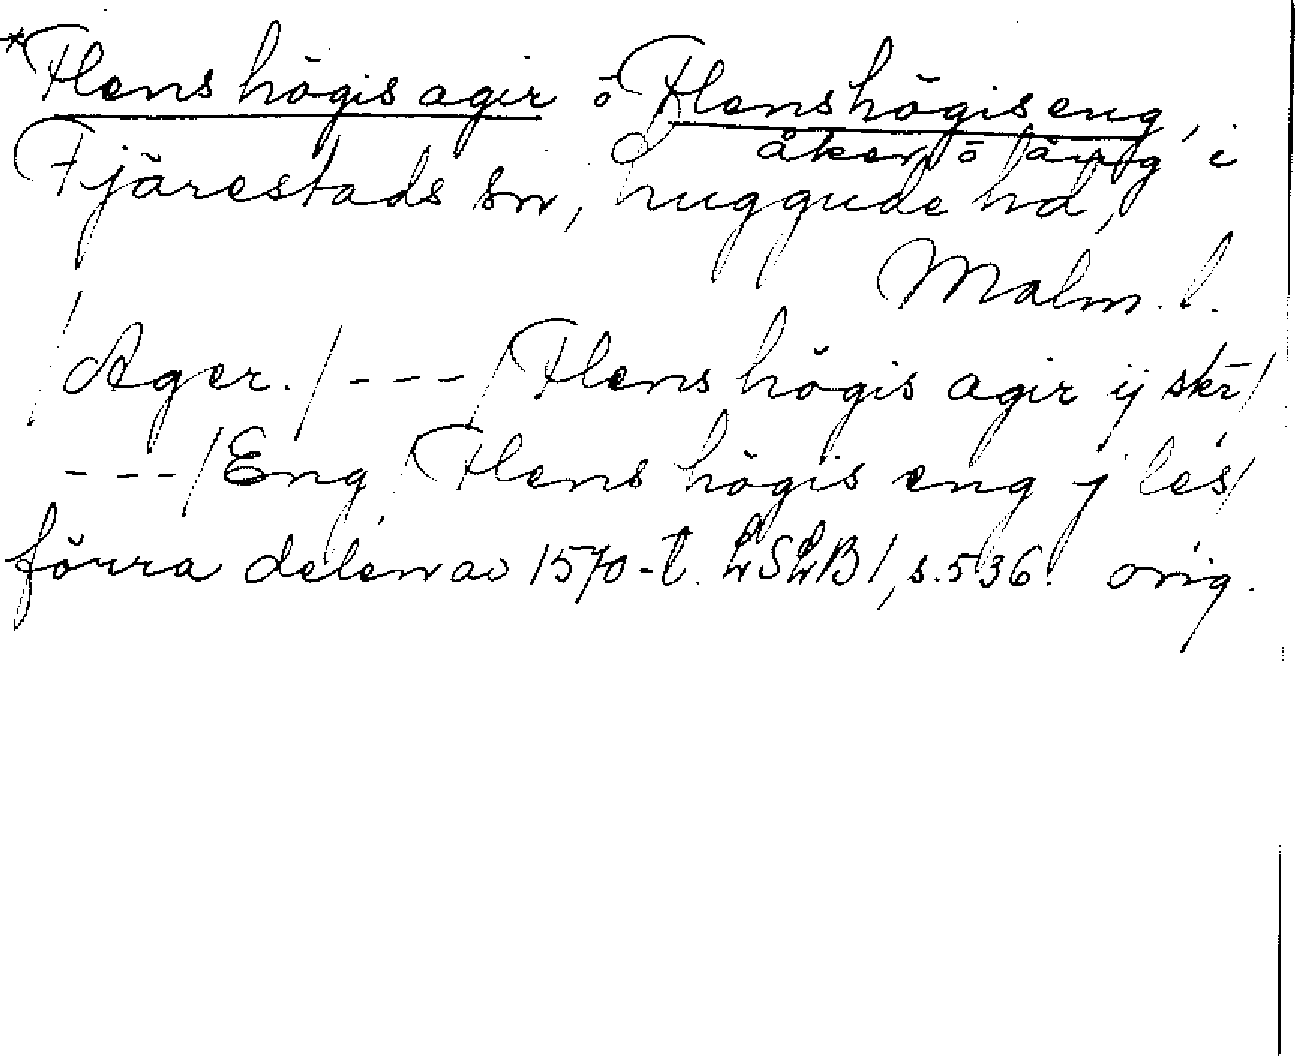 *Flens högis agir o Flenshögis eng,
åker o äng i
Fjärestads sn, Luggude hd,
Malm. l.
/Ager./ --- /Flens högis agir ij skr/
---/Eng/ Flens högis eng j les/
förra delen av 1570-t. LSLB 1, s. 536. orig.